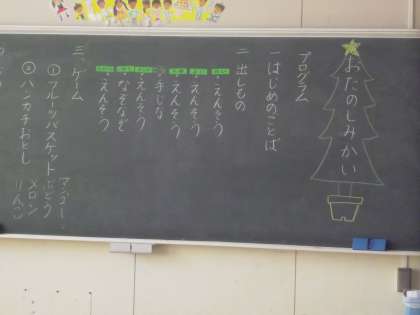 おたのしみかい
プログラム
一はじめのことば
二出しもの
・えんそう
・えんそう
・えんそう
・手じな
・えんそう
・なぞなぞ
・えんそう
三、ゲーム
①フルーツバスケット
ぶどう
メロン
りんご
②ハンカチおとし